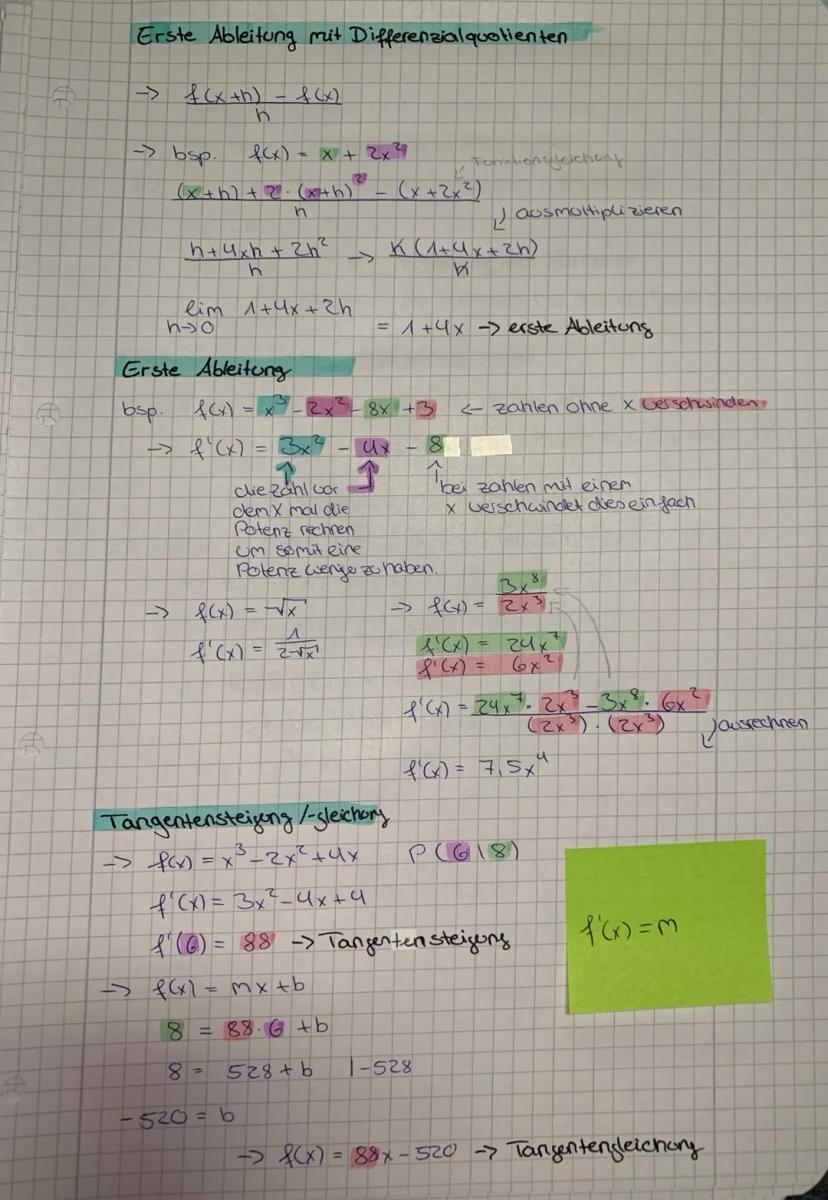 Erste Ableitung mit Differenzialquotienten
→ f(x+h) - f(x)
h
→ bsp. f(x) = x + 2x²
Funktionsgleichung
(x+h) + 2·(x+h)² - (x+2x²)
h
ausmultiplizieren
h+4xh+2h² → h(1+4x+2h)
h h
lim 1+4x+2h
h→0 = 1+4x → erste Ableitung
Erste Ableitung
bsp. f(x) = x³ - 2x² - 8x + 3 ← zahlen ohne x verschwinden
→ f'(x) = 3x² - 4x - 8
die zahl vor
dem x mal die
Potenz rechnen
um somit eine
Potenz wenge zu haben.
bei zahlen mit einem
x verschwindet dies einfach
→ f(x) = √x
f'(x) = 1
2√x
→ f(x) = 3x⁸
2x³
f'(x) = 24x⁷
f'(x) = 6x²
f'(x) = 24x⁷ · 2x³ - 3x⁸ · 6x²
(2x³) · (2x³)
ausrechnen
f'(x) = 7,5x⁴
Tangentensteigung/-gleichung
→ f(x) = x³ - 2x² + 4x P(6|8)
f'(x) = 3x² - 4x + 4
f'(6) = 88 → Tangentensteigung
f'(x) = m
→ f(x) = mx + b
8 = 88·6 + b
8 = 528 + b |-528
-520 = b
→ f(x) = 88x - 520 → Tangentengleichung